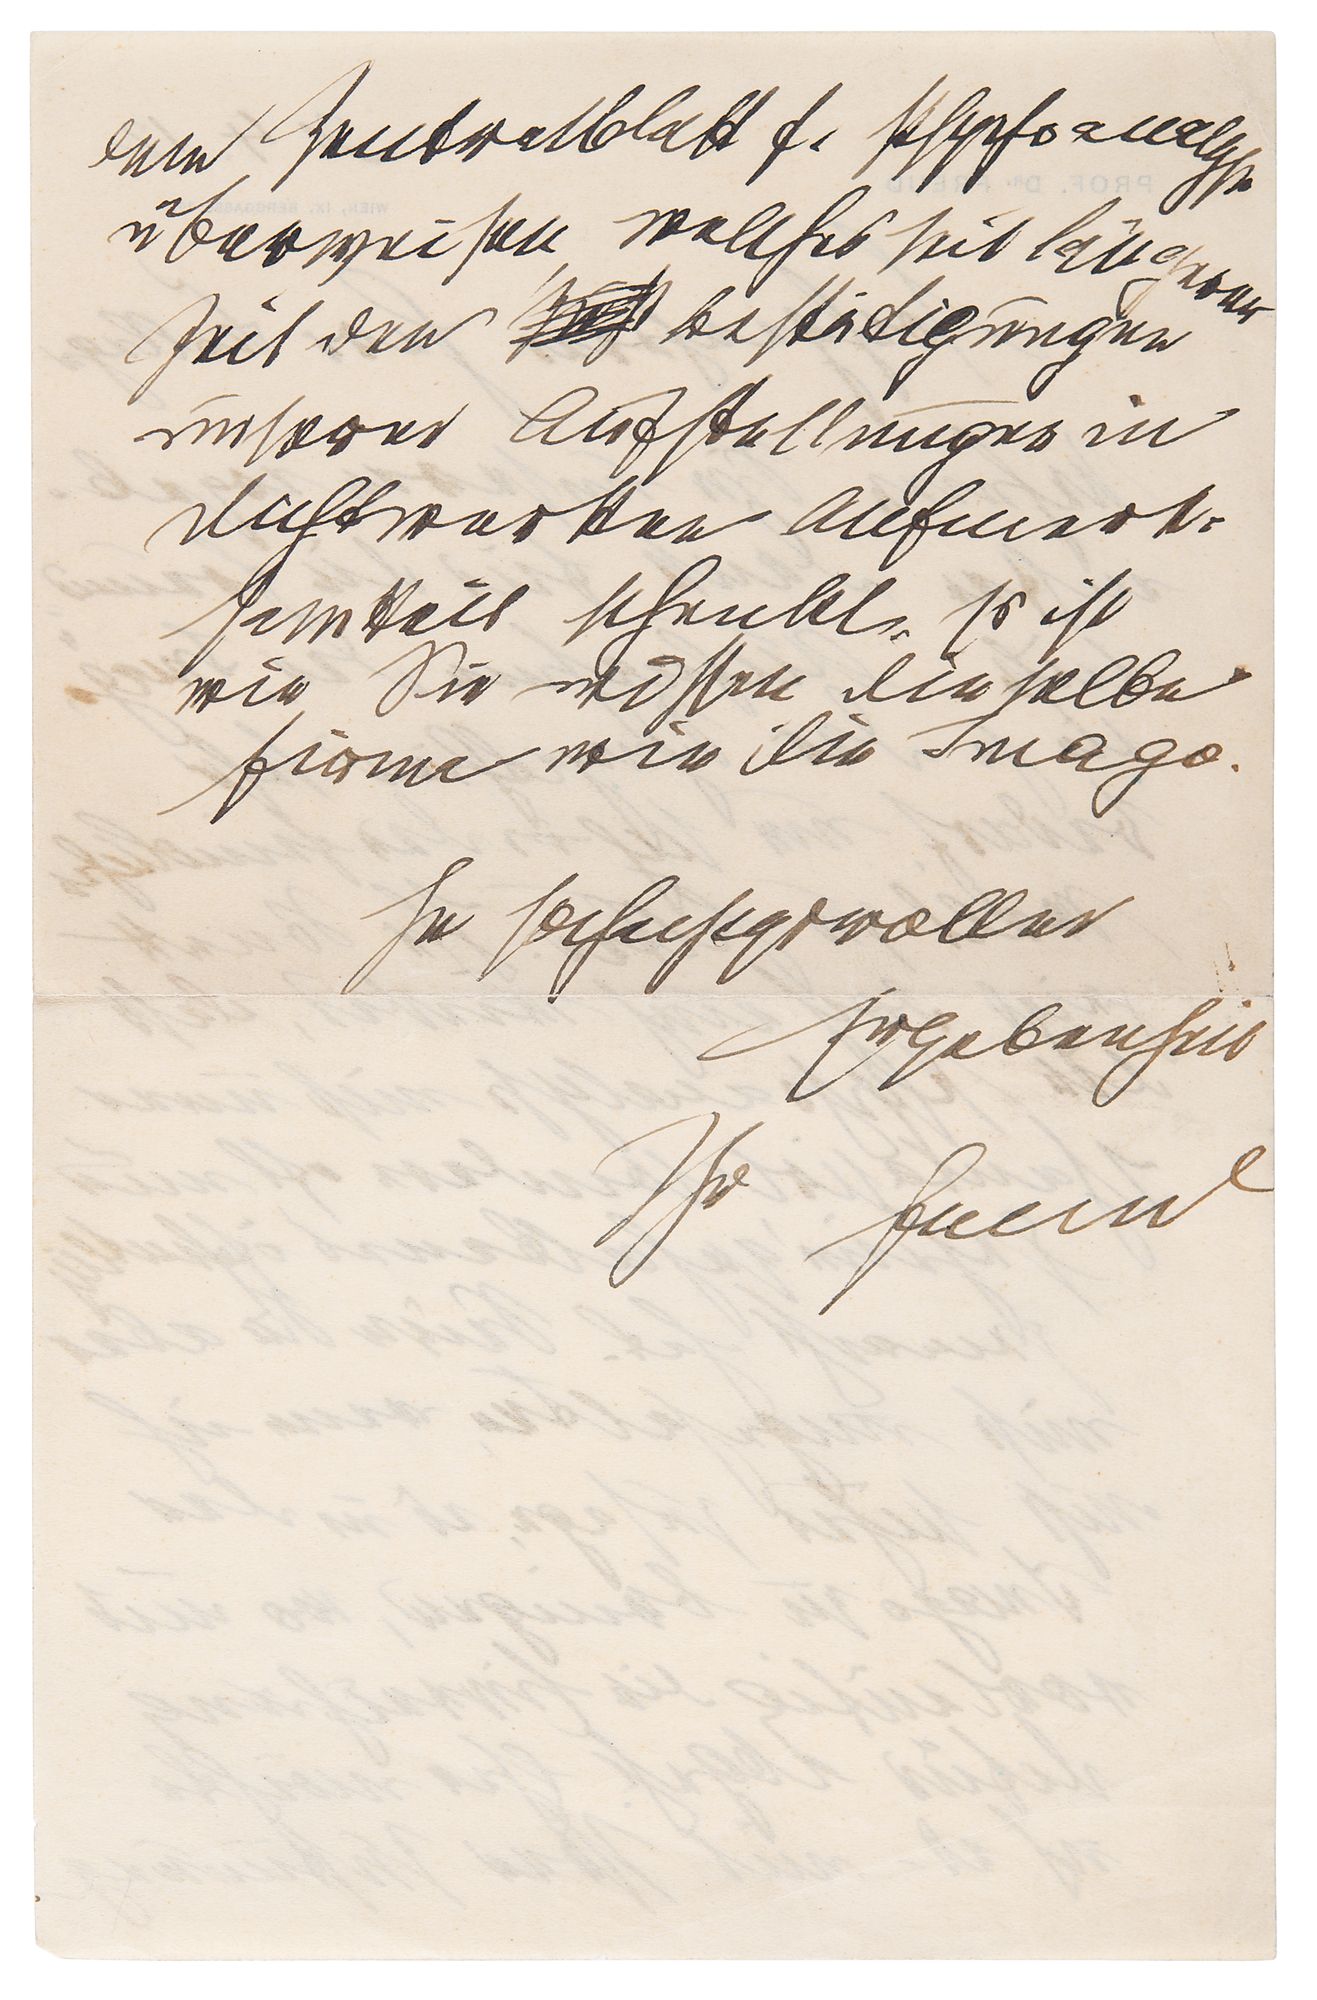 dem Zentralblatt f. Psychoanalyse
überweisen welches seit längerer
Zeit den Bestätigungen
unserer Aufstellungen in
Dichtwerken Aufmerk-
samkeit schenkt. Es ist
wie Sie wissen dieselbe
Firma wie die Imago.
In hochachtungsvoller
Ergebenheit
Ihr Freud